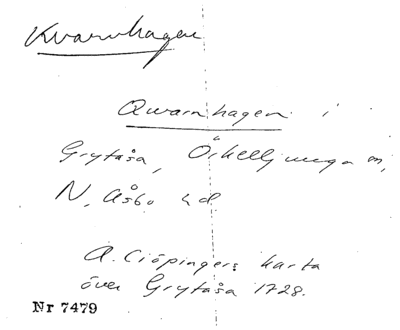 Kvarnhagen
Qwarnhagen i
Grytåsa, Örkelljunga sn,
N. Åsbo hd.
A. Ciöpingers karta
över Grytåsa 1728.
Nr 7479